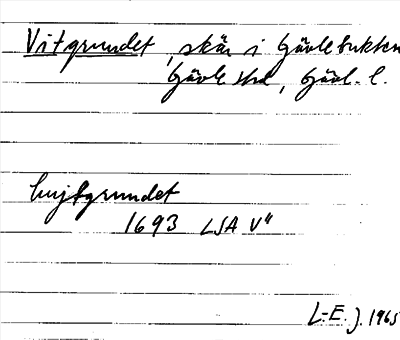 Vitgrundet, skär i Gävlebukten
Gävle stad, Gävl. l.
hwjtgrundet
1693 LSA V"
L-E. J. 1965